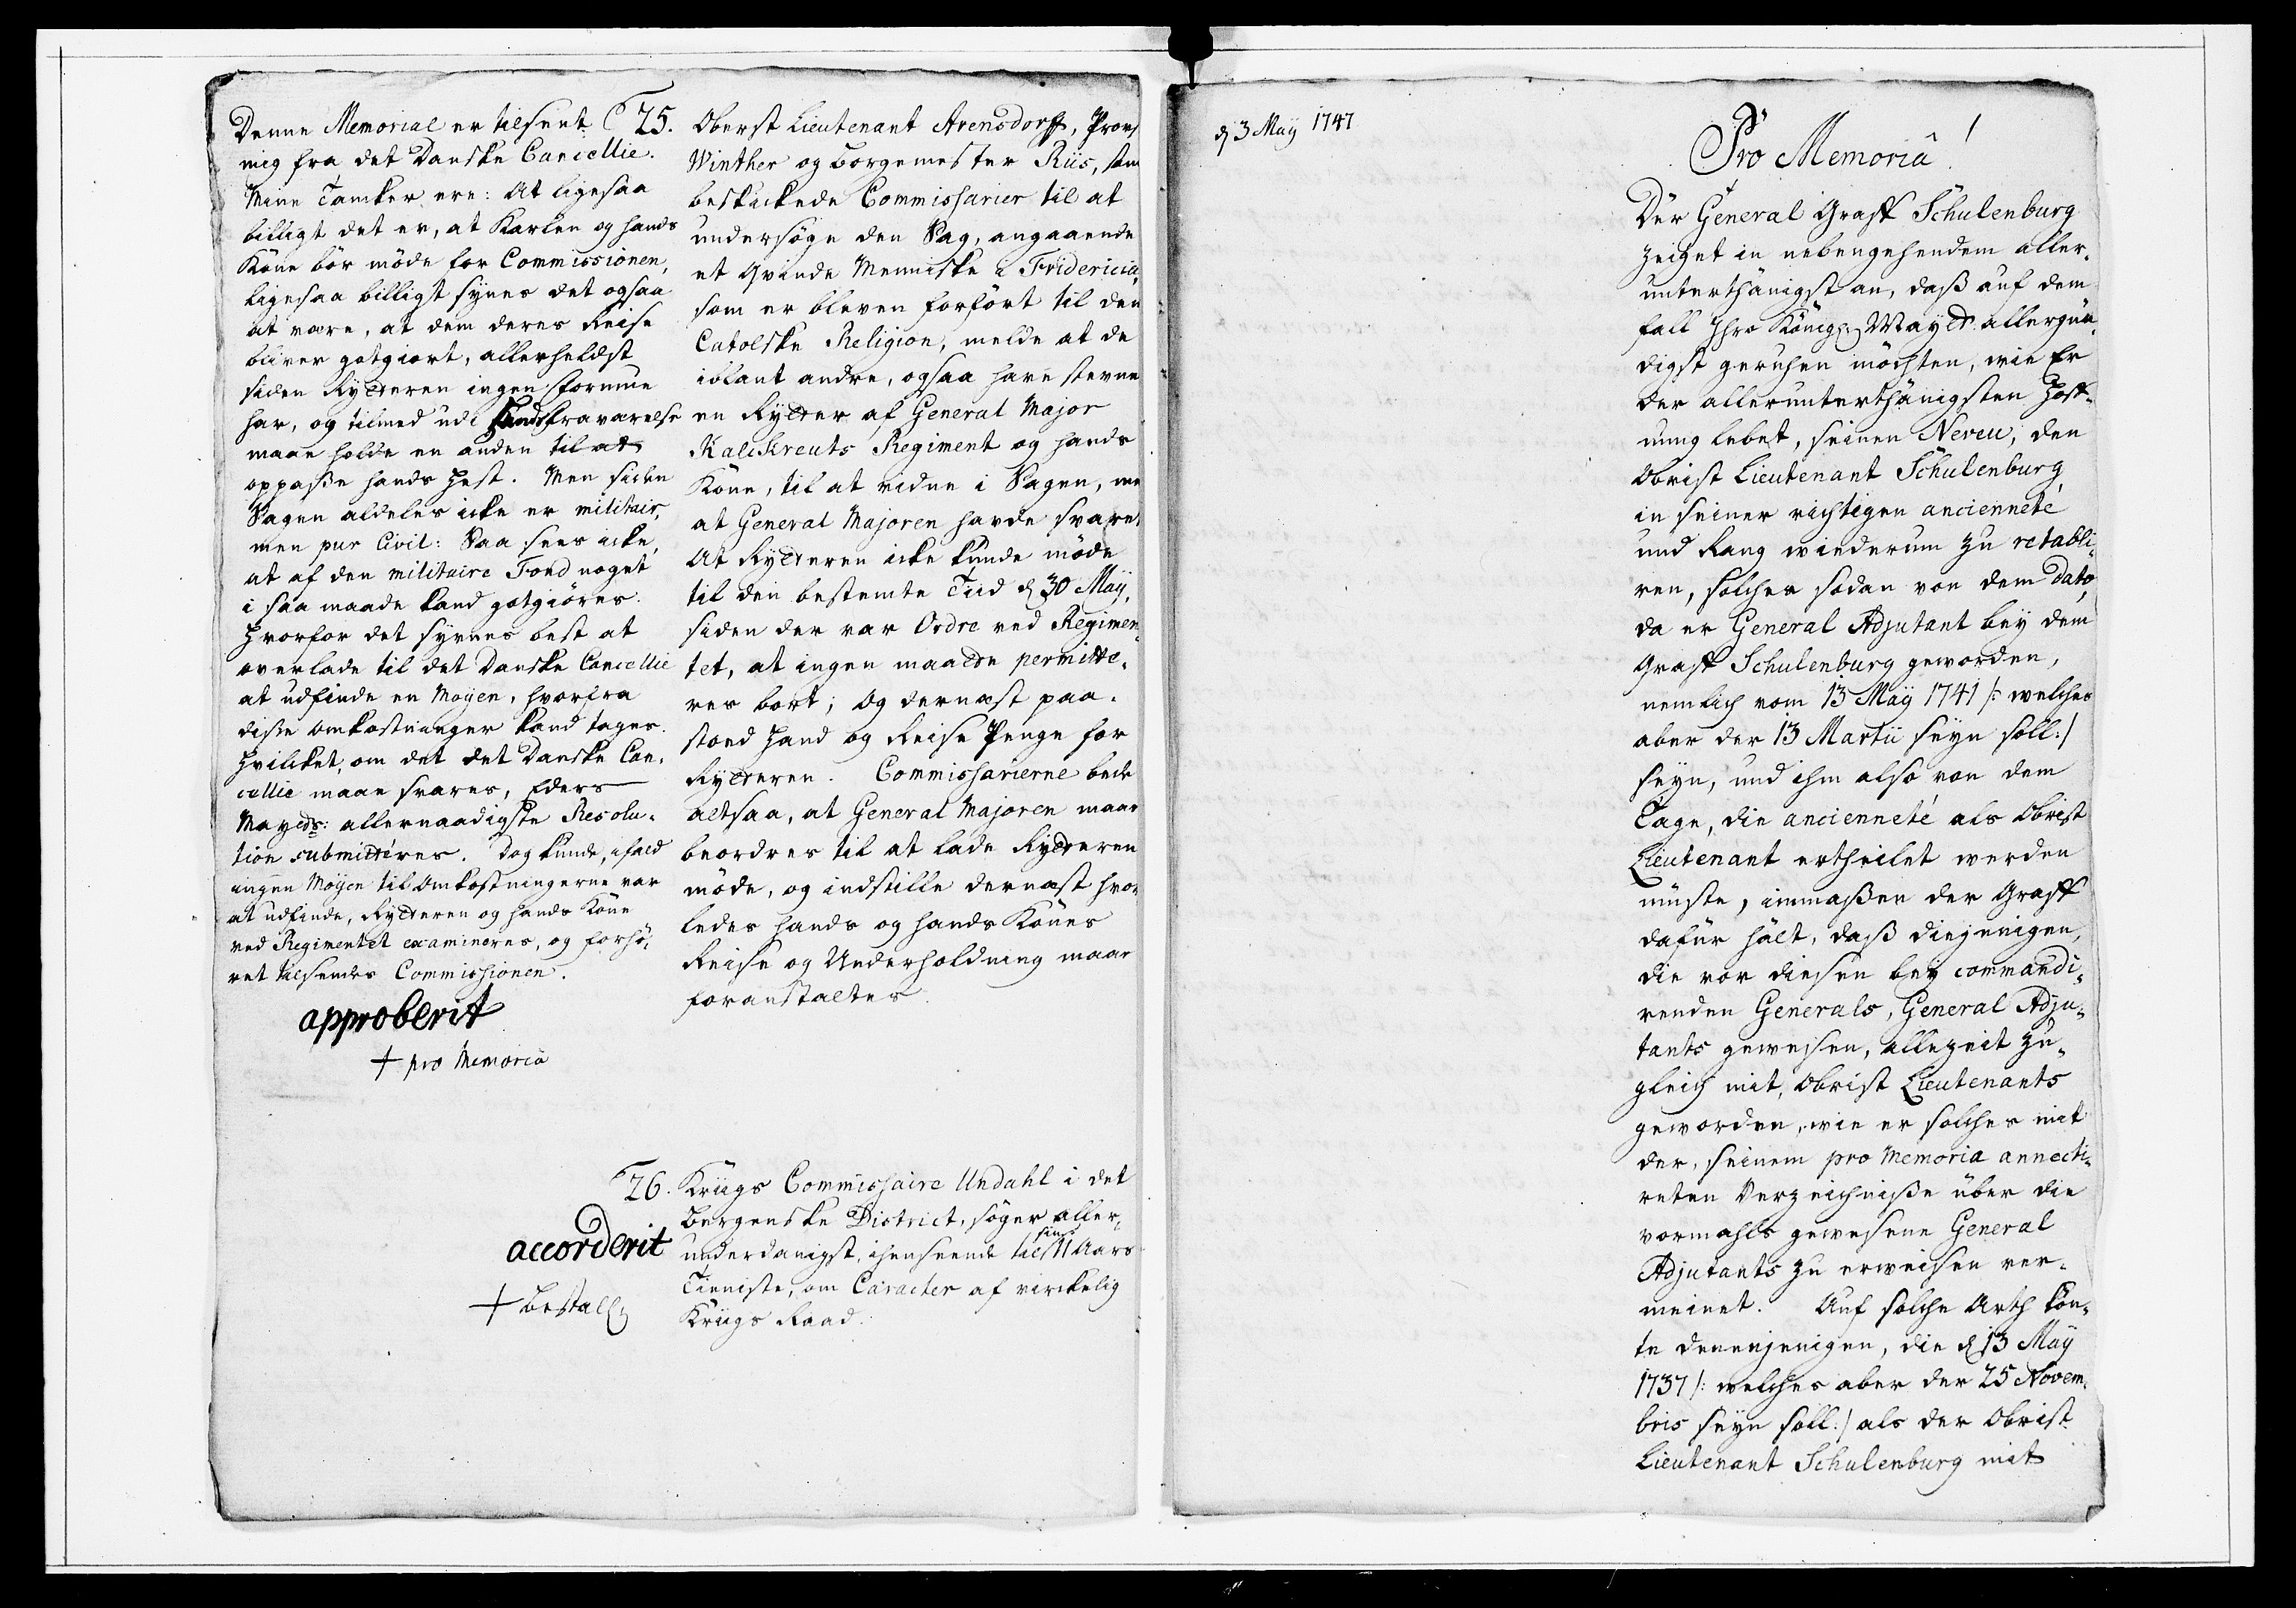 Denne Memorial er tilsent
mig fra det Danske Cancellie.
Mine Tancker ere: At ligesaa
billigt det er, at Karlen og hands
Kone bör möde for Commissionen,
ligesaa billigt synes det ogsaa
at være, at dem deres Reise
bliver gotgiort, allerheldst
siden Rytteren ingen Formue
har, og tilmed udi hands fraværelse
maae holde en anden til at
oppasse hands Hest. Men siden
Sagen aldeles icke er militair,
men pur Civil: Saa sees icke,
at af den militaire Fond noget
i saa maade kand gotgiöres.
Hvorfor det synes best at
overlade til det Danske Cancellie
at udfinde en Moyen, hvorfra
disse Omkostninger kand tages.
Hvilcket, om det det Danske Can-
cellie maae svares, Eders
Mayts: allernaadigste Resolu-
tion submitteres. Dog kunde, ifald
ingen Moyen til Omkostningerne var
at udfinde, Rytteren og hands Kone
ved Regimentet examineres, og forhö-
ret tilsendes Commissionen.
approberit
+ pro Memoria
25. Oberst Lieutenant Arensdorff, Provst
Winther og Borgemester Riis, som
beskickede Commissarier til at
undersöge den Sag, angaaende
et Qvinde Menniske i Fridericia,
som er bleven forfört til den
Catolske Religion, melde at de
iblant andre, ogsaa have stevne
en Rytter af General Major
Kalckreuts Regiment og hands
Kone, til at vidne i Sagen, me
at General Majoren havde svaret
At Rytteren icke kunde möde
til den bestemte Tiid d 30 Maÿ,
siden der var Ordre ved Regimen-
tet, at ingen maatte permitte-
res bort; Og dernæst paa-
stoed hand og Reise Penge for
Rytteren. Commissarierne bede
altsaa, at General Majoren maae
beordres til at lade Rytteren
möde, og indstille dernæst hvor
ledes hands og hands Kones
Reise og Underholdning maae
foranstaltes.
26. Kriigs Commissaire Undahl i det
Bergenske District, söger aller-
accorderit underdanigst, i henseende til sine 11 Aars
Tieniste, om Caracter af virckelig
+ bestall
Kriigs Raad.
d 3 Maÿ 1747
Pro Memoriâ!
Der General Graff Schulenburg
zeiget in nebengehendem aller-
unterthänigst an, daß auf dem
fall Ihro Königl Mayt allergnä-
digst geruhen möchten, wie Er
der allerunterthänigsten Hoff-
nung lebet, seinen Neveu, den
Obrist Lieutenant Schulenburg,
in seiner richtigen ancienneté
und Rang wiederum zu retabli-
ren, solches sodan von dem Dato,
da er General Adjutant bey dem
Graff Schulenburg geworden,
nemlich vom 13 Maÿ 1741 /: welches
aber der 13 Martii seyn soll:/
seyn, und ihm also von dem
Tage, die ancienneté als Obrist
Lieutenant ertheilet werden
müste, immaßen der Graff
dafür hält, daß diejenigen,
die vor diesen bey commandi-
renden Generals, General Adju-
tants gewesen, allezeit zu-
gleich mit, Obrist Lieutenants
geworden, wie er solches mit
der, seinem pro Memoria annecti-
reten Verzeichniße über die
vormahls gewesene General
Adjutants zu erweisen ver-
meinet. Auf solche Arth kön-
te denenjenigen, die d 13 Maÿ
1737 /: welches aber der 25 Novem-
bris seyn soll:/ als der Obrist
Lieutenant Schulenburg mit